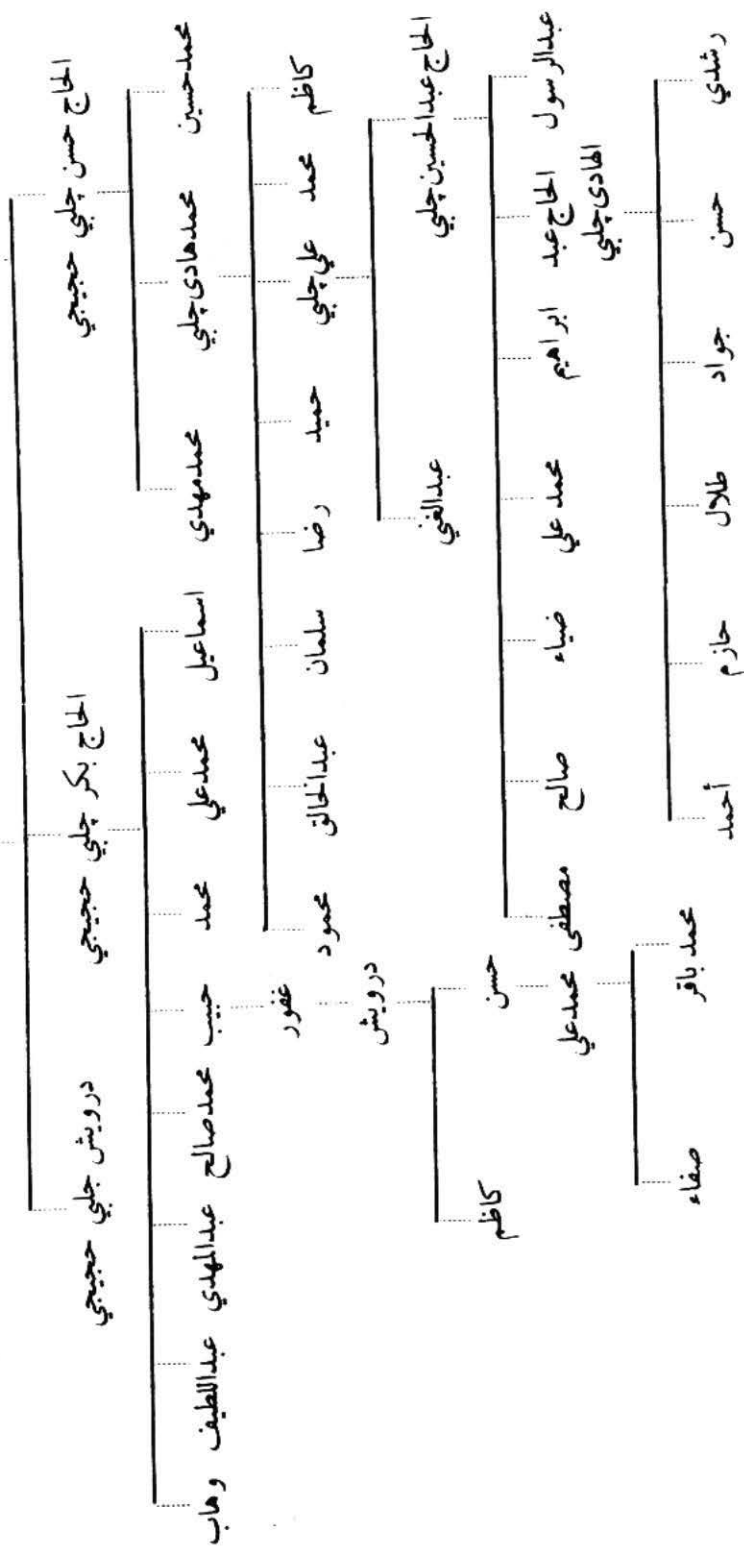 الحاج حسن چلبي حجيجي
الحاج بكر چلبي حجيجي
درويش چلبي حجيجي
محمد حسين
محمد هادي چلبي
محمد مهدي
اسماعيل
محمد علي
محمد
حبيب
محمد صالح
عبدالمهدي
عبداللطيف
وهاب
كاظم
محمد
علي چلبي
حميد
رضا
سلمان
عبدالخالق
محمود
غفور
الحاج عبدالحسين چلبي
عبدالغني
درويش
عبدالرسول
الحاج عبد
الهادي چلبي
ابراهيم
محمد علي
ضياء
صالح
مصطفى
حسن
كاظم
محمد علي
رشدي
حسن
جواد
طلال
حازم
أحمد
محمد باقر
صفاء